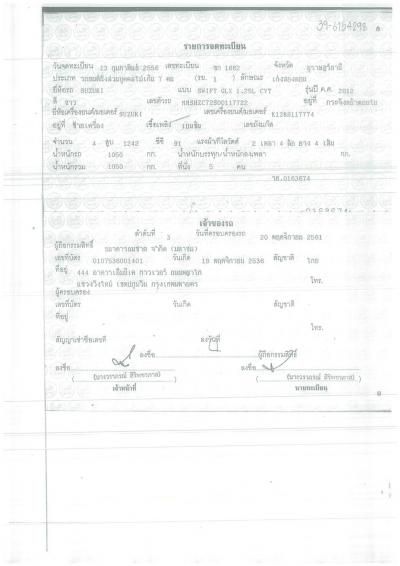 รายการจดทะเบียน
วันจดทะเบียน 13 กุมภาพันธ์ 2556 เลขทะเบียน 1662 จังหวัด สุราษฎร์ธานี
ประเภท รถยนต์นั่งส่วนบุคคลไม่เกิน 7 คน (รย. 1 ) ลักษณะ เก๋งสองตอน
ยี่ห้อรถ SUZUKI แบบ SWIFT GLX 1.25L CVT รุ่นปี ค.ศ. 2012
สี ขาว เลขตัวรถ อยู่ที่
ยี่ห้อเครื่องยนต์/มอเตอร์ SUZUKI เลขเครื่องยนต์/มอเตอร์ K12BU117774
อยู่ที่ ซ้ายเครื่อง เชื้อเพลิง เบนซิน เลขถังแก๊ส
จำนวน 4 สูบ 1242 ซีซี 91 แรงม้า/กิโลวัตต์ 2 เพลา 4 ล้อ ยาง 4 เส้น
น้ำหนักรถ 1050 กก. น้ำหนักบรรทุก/น้ำหนักลงเพลา กก.
น้ำหนักรวม 1050 กก. ที่นั่ง 5 คน
เจ้าของรถ
ลำดับที่ 3 วันที่ครอบครองรถ 20 พฤศจิกายน 2561
ผู้ถือกรรมสิทธิ์ ธนาคารธนชาต จำกัด (มหาชน)
เลขที่บัตร 0107536001401 วันเกิด 19 พฤศจิกายน 2536 สัญชาติ ไทย
ที่อยู่ 444 อาคารเอ็มบีเค ทาวเวอร์ ถนนพญาไท โทร.
แขวงวังใหม่ เขตปทุมวัน กรุงเทพมหานคร
ผู้ครอบครอง
เลขที่บัตร วันเกิด สัญชาติ
ที่อยู่
โทร.
สัญญาเช่าซื้อเลขที่ ลงวันที่
ลงชื่อ ผู้ถือกรรมสิทธิ์
ลงชื่อ ลงชื่อ
เจ้าหน้าที่ นายทะเบียน